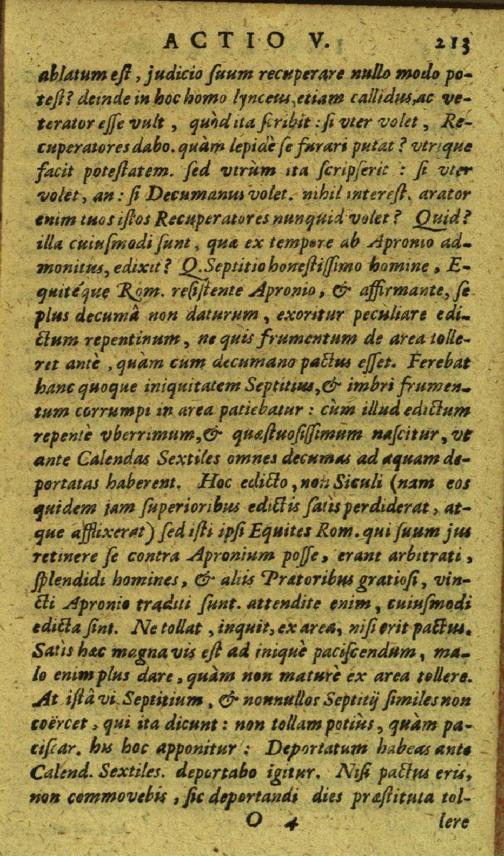 ACTIO V. 213
ablatum est, judicio suum recuperare nullo modo po-
test? deinde in hoc homo lynceus, etiam callidus, ac ve-
terator esse vult, quòd ita scribit: si vter volet, Re-
cuperatores dabo. quàm lepidè se furari putat? vtrique
facit potestatem. sed vtrùm ita scripserit: si vter
volet, an: si Decumanus volet. nihil interest. arator
enim tuos istos Recuperatores nunquid volet? Quid?
illa cuiusmodi sunt, quæ ex tempore ab Apronio ad-
monitus, edixit? Q. Septitio honestissimo homine, E-
quitéque Rom. resistente Apronio, & affirmante, se
plus decumâ non daturum, exoritur peculiare edi-
ctum repentinum, ne quis frumentum de area tolle-
ret antè, quàm cum decumano pactus esset. Ferebat
hanc quoque iniquitatem Septitius, & imbri frumen-
tum corrumpi in area patiebatur: cùm illud edictum
repentè vberrimum, & quæstuosissimum nascitur, vt
ante Calendas Sextiles omnes decumas ad aquam de-
portatas haberent. Hoc edicto, non Siculi (nam eos
quidem jam superioribus edictis satis perdiderat, at-
que afflixerat) sed isti ipsi Equites Rom. qui suum jus
retinere se contra Apronium posse, erant arbitrati,
splendidi homines, & aliis Prætoribus gratiosi, vin-
cti Apronio traditi sunt. attendite enim, cuiusmodi
edicta sint. Ne tollat, inquit, ex area, nisi erit pactus.
Satis hæc magna vis est ad iniquè paciscendum, ma-
lo enim plus dare, quàm non maturè ex area tollere.
At istâ vi Septitium, & nonnullos Septitij similes non
coërcet, qui ita dicunt: non tollam potiùs, quàm pa-
ciscar. his hoc apponitur: Deportatum habeas ante
Calend. Sextiles. deportabo igitur. Nisi pactus eris,
non commovebis, sic deportandi dies præstituta tol-
O 4 lere